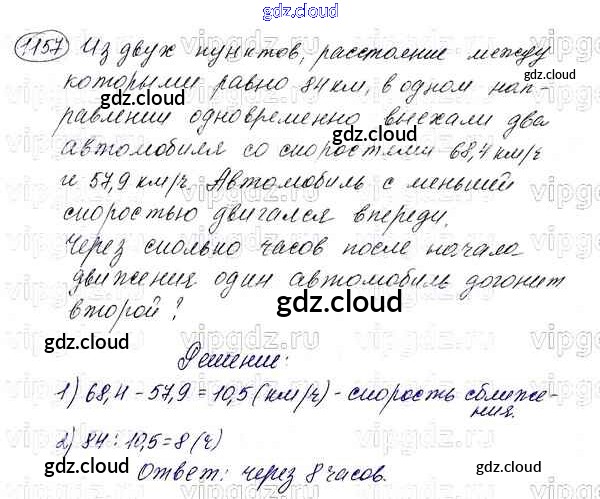 gdz.cloud
1157 Из двух пунктов, расстояние между
которыми равно 84 км, в одном нап-
gdz.cloud
равлении одновременно выехали два
gdz.cloud
автомобиля со скоростями 68,4 км/ч
и 57,9 км/ч. Автомобиль с меньшей
скоростью двигался впереди.
gdz.cloud
Через сколько часов после начала
движения один автомобиль догонит
второй?
gdz.cloud
gdz.cloud
Решение:
gdz.cloud
1) 68,4 - 57,9 = 10,5 (км/ч) - скорость сближе-
ния.
2) 84 : 10,5 = 8 (ч)
gdz.cloud
gdz.cloud
Ответ: через 8 часов.
gdz.cloud